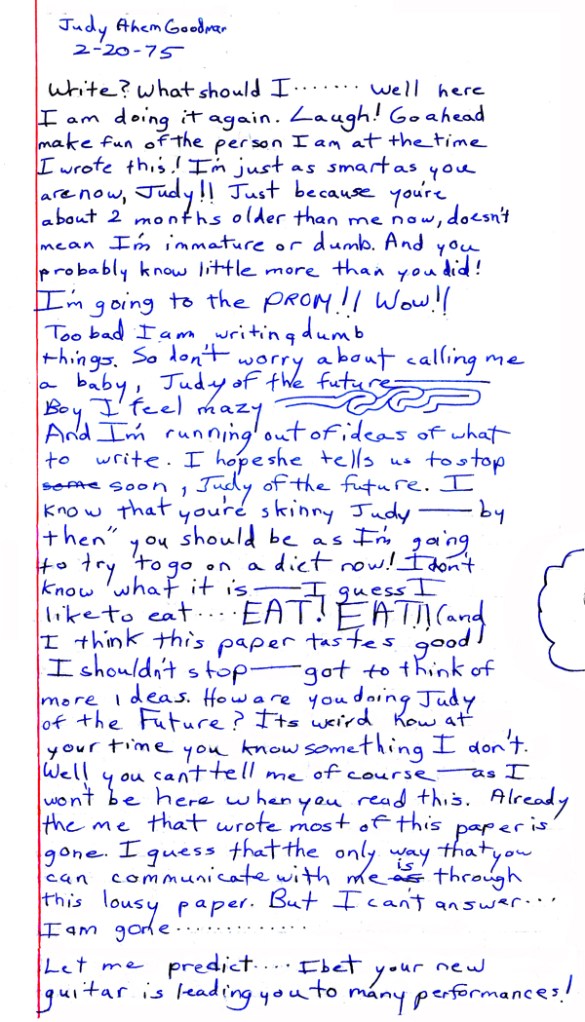 Judy Ahem Goodman
2-20-75
Write? What should I ....... well here
I am doing it again. Laugh! Go ahead
make fun of the person I am at the time
I wrote this! I'm just as smart as you
are now, Judy!! Just because you're
about 2 months older than me now, doesn't
mean I'm immature or dumb. And you
probably know little more than you did!
I'm going to the PROM!! Wow!!
Too bad I am writing dumb
things. So don't worry about calling me
a baby, Judy of the future
Boy I feel mazy
And I'm running out of ideas of what
to write. I hope she tells us to stop
some soon, Judy of the future. I
know that you're skinny Judy — by
then" you should be as I'm going
to try to go on a diet now! I don't
know what it is — I guess I
like to eat .... EAT! EAT!! (and
I think this paper tastes good!
I shouldn't stop — got to think of
more ideas. How are you doing Judy
of the Future? Its weird how at
your time you know something I don't.
Well you can't tell me of course — as I
won't be here when you read this. Already
the me that wrote most of this paper is
gone. I guess that the only way that you
can communicate with me as is through
this lousy paper. But I can't answer...
I am gone .............
Let me predict.... I bet your new
guitar is leading you to many performances!